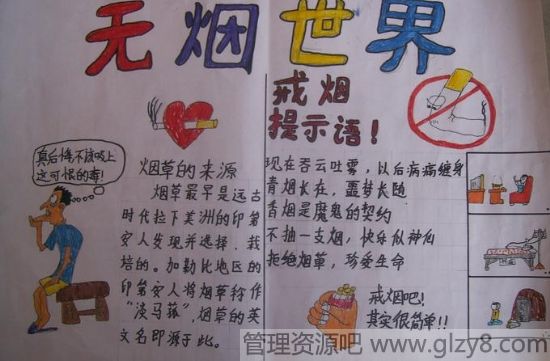 无烟世界
戒烟
提示语！
真后悔不该吸上
这可恨的毒！
烟草的来源
烟草最早是远古
时代拉下美洲的印第
安人发现并选择、栽
培的。加勒比地区的
印第安人将烟草称作
"淡马菰"，烟草的英
文名即源于此。
现在吞云吐雾，以后病痛缠身
青烟长在，噩梦长随
香烟是魔鬼的契约
不抽一支烟，快乐似神仙
拒绝烟草，珍爱生命
戒烟吧！
其实很简单！！
管理资源吧 www.glzy8.com